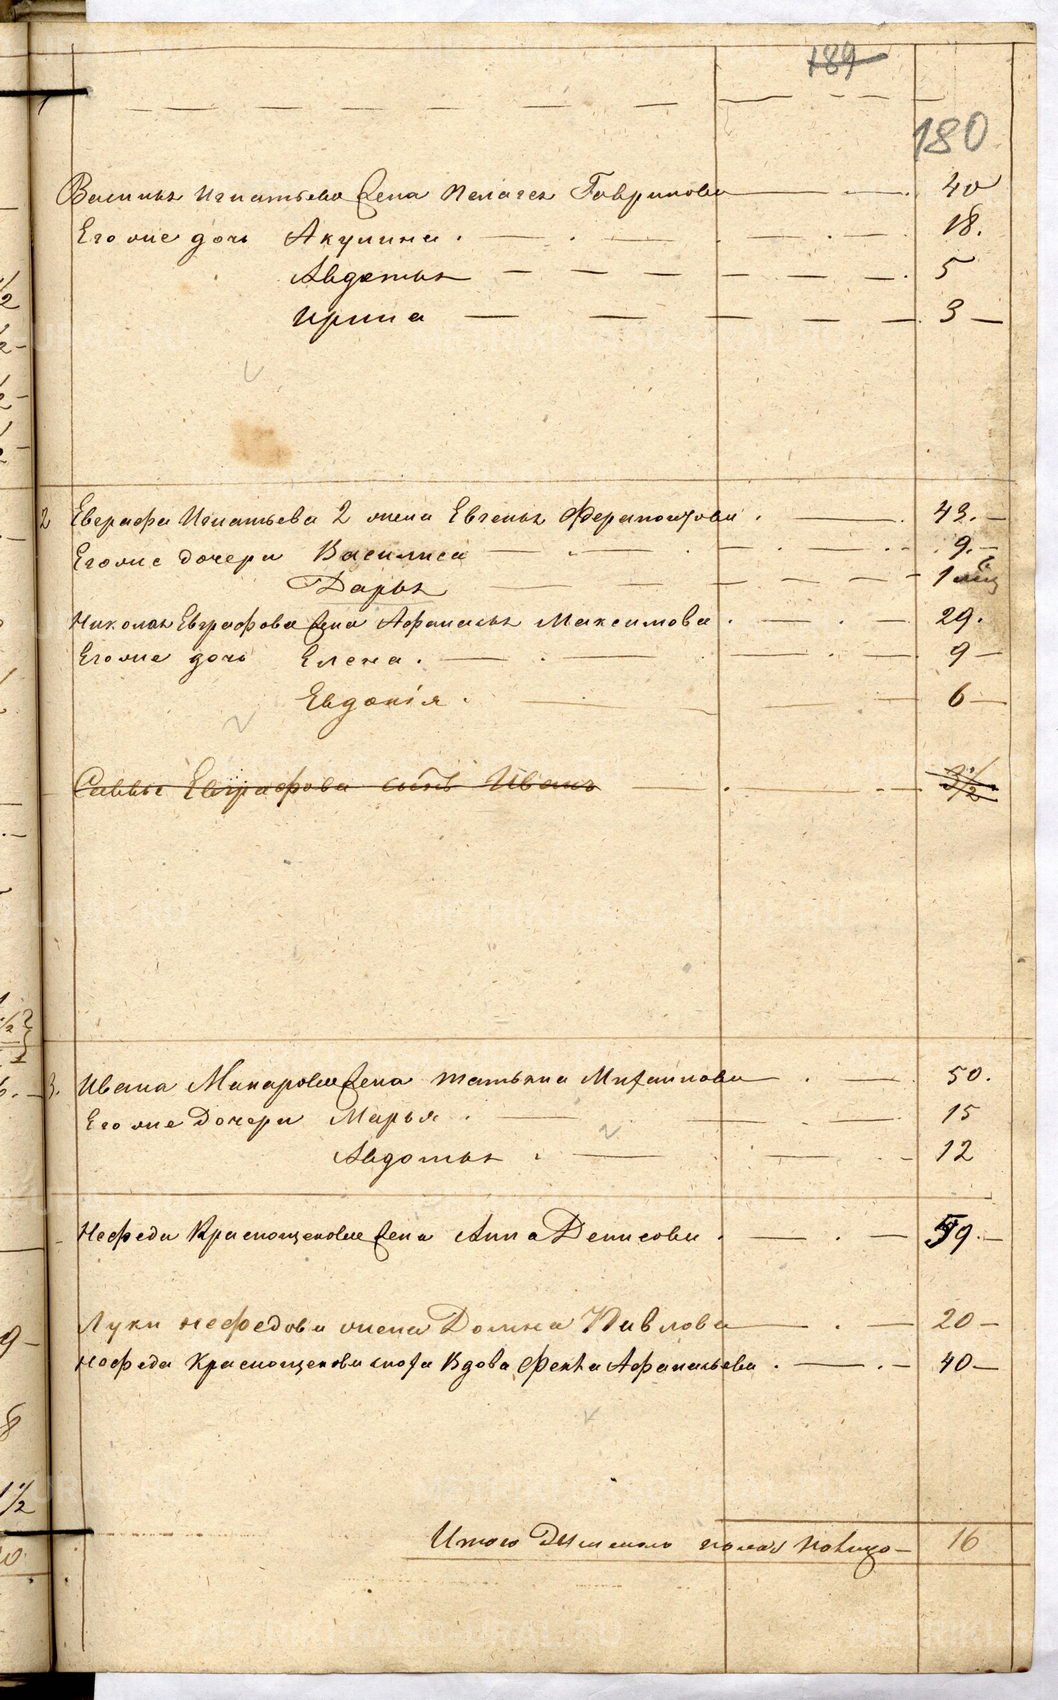 189
180
Василья Игнатьева жена Пелагея Гаврилова 40
Его же дочь Акулина 18.
Авдотья 5
Ирина 3
2 Евграфа Игнатьева 2 жена Евгенья Ферапонтова 43.
Его же дочери Василиса 9.
Дарья 1
Николая Евграфова жена Афанасья Максимова 29.
Его же дочь Елена 9
Евдокія 6
Саввы Евграфова сынъ Иванъ 3 1/2
3. Ивана Макарова жена Татьяна Михайлова 50.
Его же Дочери Марья 15
Авдотья 12
Нефеда Краснощекова жена Анна Денисова 59.
Луки Нефедова жена Домна Павлова 20
Нефеда Краснощекова сноха Вдова Фекла Афанасьева 40
Итого женского пола 16